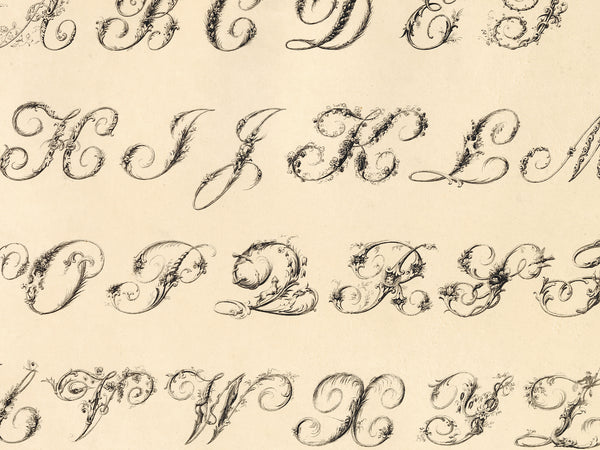 A B C D E F
H I J K L M
O P Q R S T
U V W X Y Z